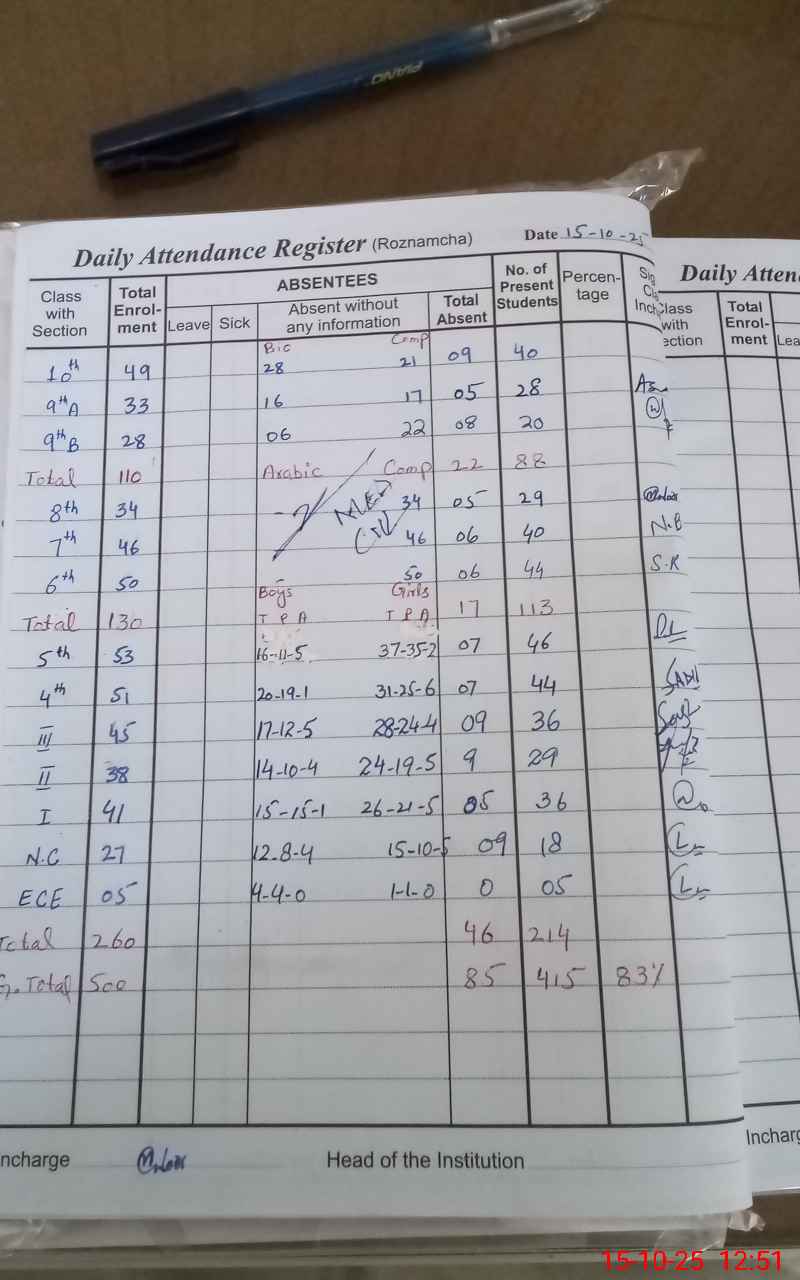 PIANO
Daily Attendance Register (Roznamcha) Date 15-10-25
Class with Section Total Enrol-ment ABSENTEES Leave Sick Absent without any information Total Absent No. of Present Students Percen-tage
Bio Comp
10th 49 28 21 09 40
9th A 33 16 17 05 28
9th B 28 06 22 08 20
Total 110 Arabic Comp 22 88
8th 34 34 05 29
7th 46 46 06 40 N.B
6th 50 - 50 06 44 S.R
Boys Girls
Total 130 T P A T P A 17 113
5th 53 16-11-5 37-35-2 07 46
4th 51 20-19-1 31-25-6 07 44
III 45 17-12-5 28-24-4 09 36
II 38 14-10-4 24-19-5 9 29
I 41 15-15-1 26-21-5 05 36
N.C 27 12-8-4 15-10-5 09 18
ECE 05 4-4-0 1-1-0 0 05
Total 260 46 214
G. Total 500 85 415 83%
ncharge Head of the Institution
Daily Atten
Class with ection Total Enrol-ment Lea
Incharg
15-10-25 12:51